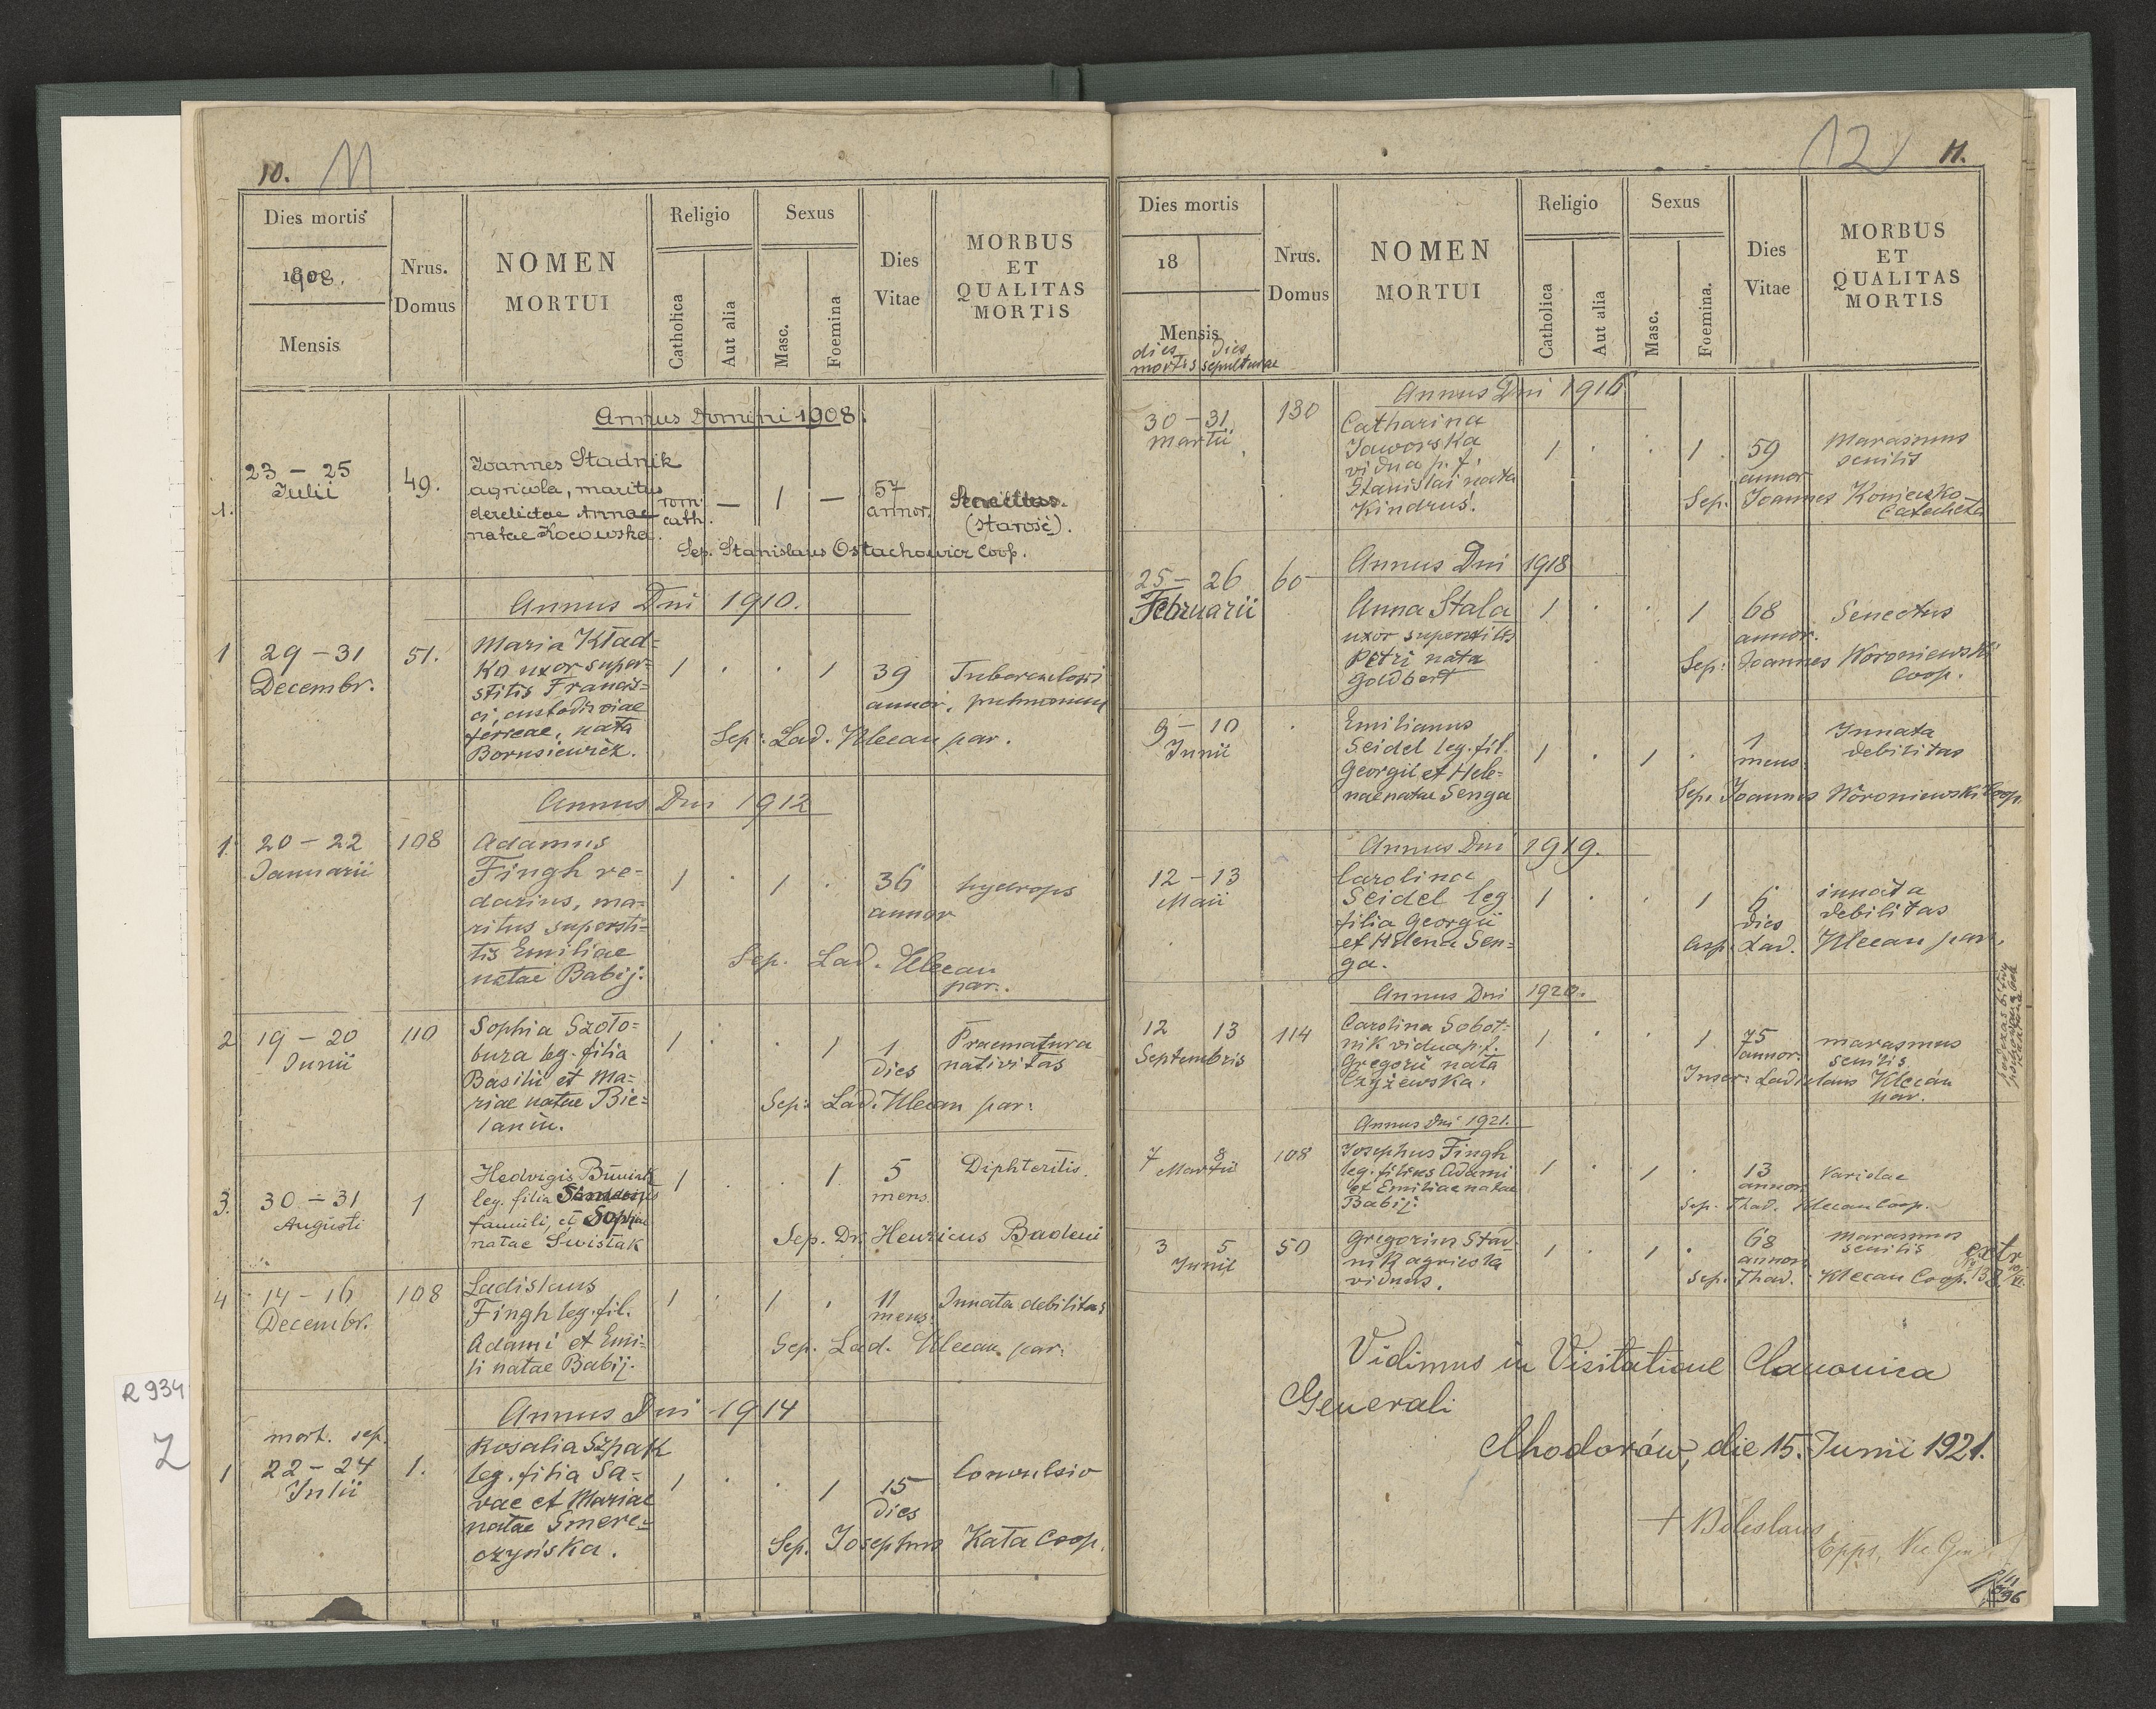 10. 11
Dies mortis
1908.
Mensis
Nrus.
Domus
NOMEN
MORTUI
Religio
Catholica
Aut alia
Sexus
Masc.
Foemina
Dies
Vitae
MORBUS
ET
QUALITAS
MORTIS
Annus Domini 1908.
1.
23 - 25
Julii
49.
Joannes Stadnik
agricola, maritus
derelictae Annae
natae Kocowska.
rom.
cath.
— 1 —
57
annor.
Senectus.
(starość).
Sep. Stanislaus Ostachowicz Coop.
Annus Dni 1910.
1
29 - 31
Decembr.
51.
Maria Kład-
ko uxor super-
stitis Francis-
ci, custodis viae
ferreae, nata
Bornsiewicz.
1 . . 1
39
annor.
Tuberculosis
pulmonum
Sep: Lad. Klecan par.
Annus Dni 1912
1.
20 - 22
Januarii
108
Adamus
Fingh re-
darius, ma-
ritus supersti-
tis Emiliae
natae Babij.
1 . 1 .
36
annor
hydrops
Sep. Lad. Klecan
par.
2
19 - 20
Junii
110
Sophia Szoto-
bura leg. filia
Basilii et Ma-
riae natae Bie-
lanin.
1 . . 1
1
dies
Praematura
nativitas
Sep: Lad. Klecan par.
3.
30 - 31
Augusti
1
Hedvigis Buniak
leg. filia
famuli, et Sophiae
natae Swistak
1 . . 1
5
mens.
Diphteritis
Sep. Dr. Henricus Badeni
4
14 - 16
Decembr.
108
Ladislaus
Fingh leg. fil.
Adami et Emi-
li natae Babij.
1 . 1 .
11
mens.
Innata debilitas
Sep. Lad. Klecan par.
Annus Dni 1914
1
mort. sep.
22 - 24
Julii
1.
Rosalia Szpak
leg. filia Sa-
vae et Mariae
natae Smere-
czyńska.
1 . . 1
15
dies
Convulsio
Sep. Josephus Kata Coop.
R 934
Z
12 11.
Dies mortis
18
Mensis
dies dies
mortis sepulturae
Nrus.
Domus
NOMEN
MORTUI
Religio
Catholica
Aut alia
Sexus
Masc.
Foemina.
Dies
Vitae
MORBUS
ET
QUALITAS
MORTIS
Annus Dni 1916
30 - 31
Martii
130
Catharina
Jaworska
vidua p. f.
Stanislai nata
Kindrus.
1 . . 1
59
annor
Marasmus
senilis
Sep. Joannes Koniewsko
Catecheta
Annus Dni 1918
25 - 26
Februarii
60
Anna Stala
uxor superstitis
Petri nata
Goldbert
1 . . 1
68
annor.
Senectus
Sep: Joannes Woroniewski
Coop.
9 - 10
Junii
Emilianus
Seidel leg. fil.
Georgii et Hele-
nae natae Senga
1 . 1 .
1
mens.
Innata
debilitas
Sep. Joannes Woroniewski Coop.
Annus Dni 1919.
12 - 13
Maii
Carolina
Seidel leg
filia Georgii
et Helena Sen-
ga.
1 . . 1
6
dies
innata
debilitas
Lad. Klecan par.
Annus Dni 1920.
12 13
Septembris
114
Carolina Sobot-
nik vidua p. f.
Gregorii nata
Czyżewska.
1 . . 1
75
annor.
marasmus
senilis
Inser: Ladislaus Klecan
par.
Annus Dni 1921.
7 8
Martii
108
Josephus Fingh
leg. filius Adami
et Emiliae natae
Babij.
1 . 1 .
13
annor.
Variolae
Sep. Thad. Klecan Coop.
3 5
Junii
50
Gregorius Stad-
nik agricola
viduus.
1 . 1 .
68
annor.
marasmus
senilis
Sep. Thad. Klecan Coop.
extr
Vidimus in Visitatione Canonica
Generali
Chodorów, die 15. Junii 1921.
+ Boleslaus
Epps,